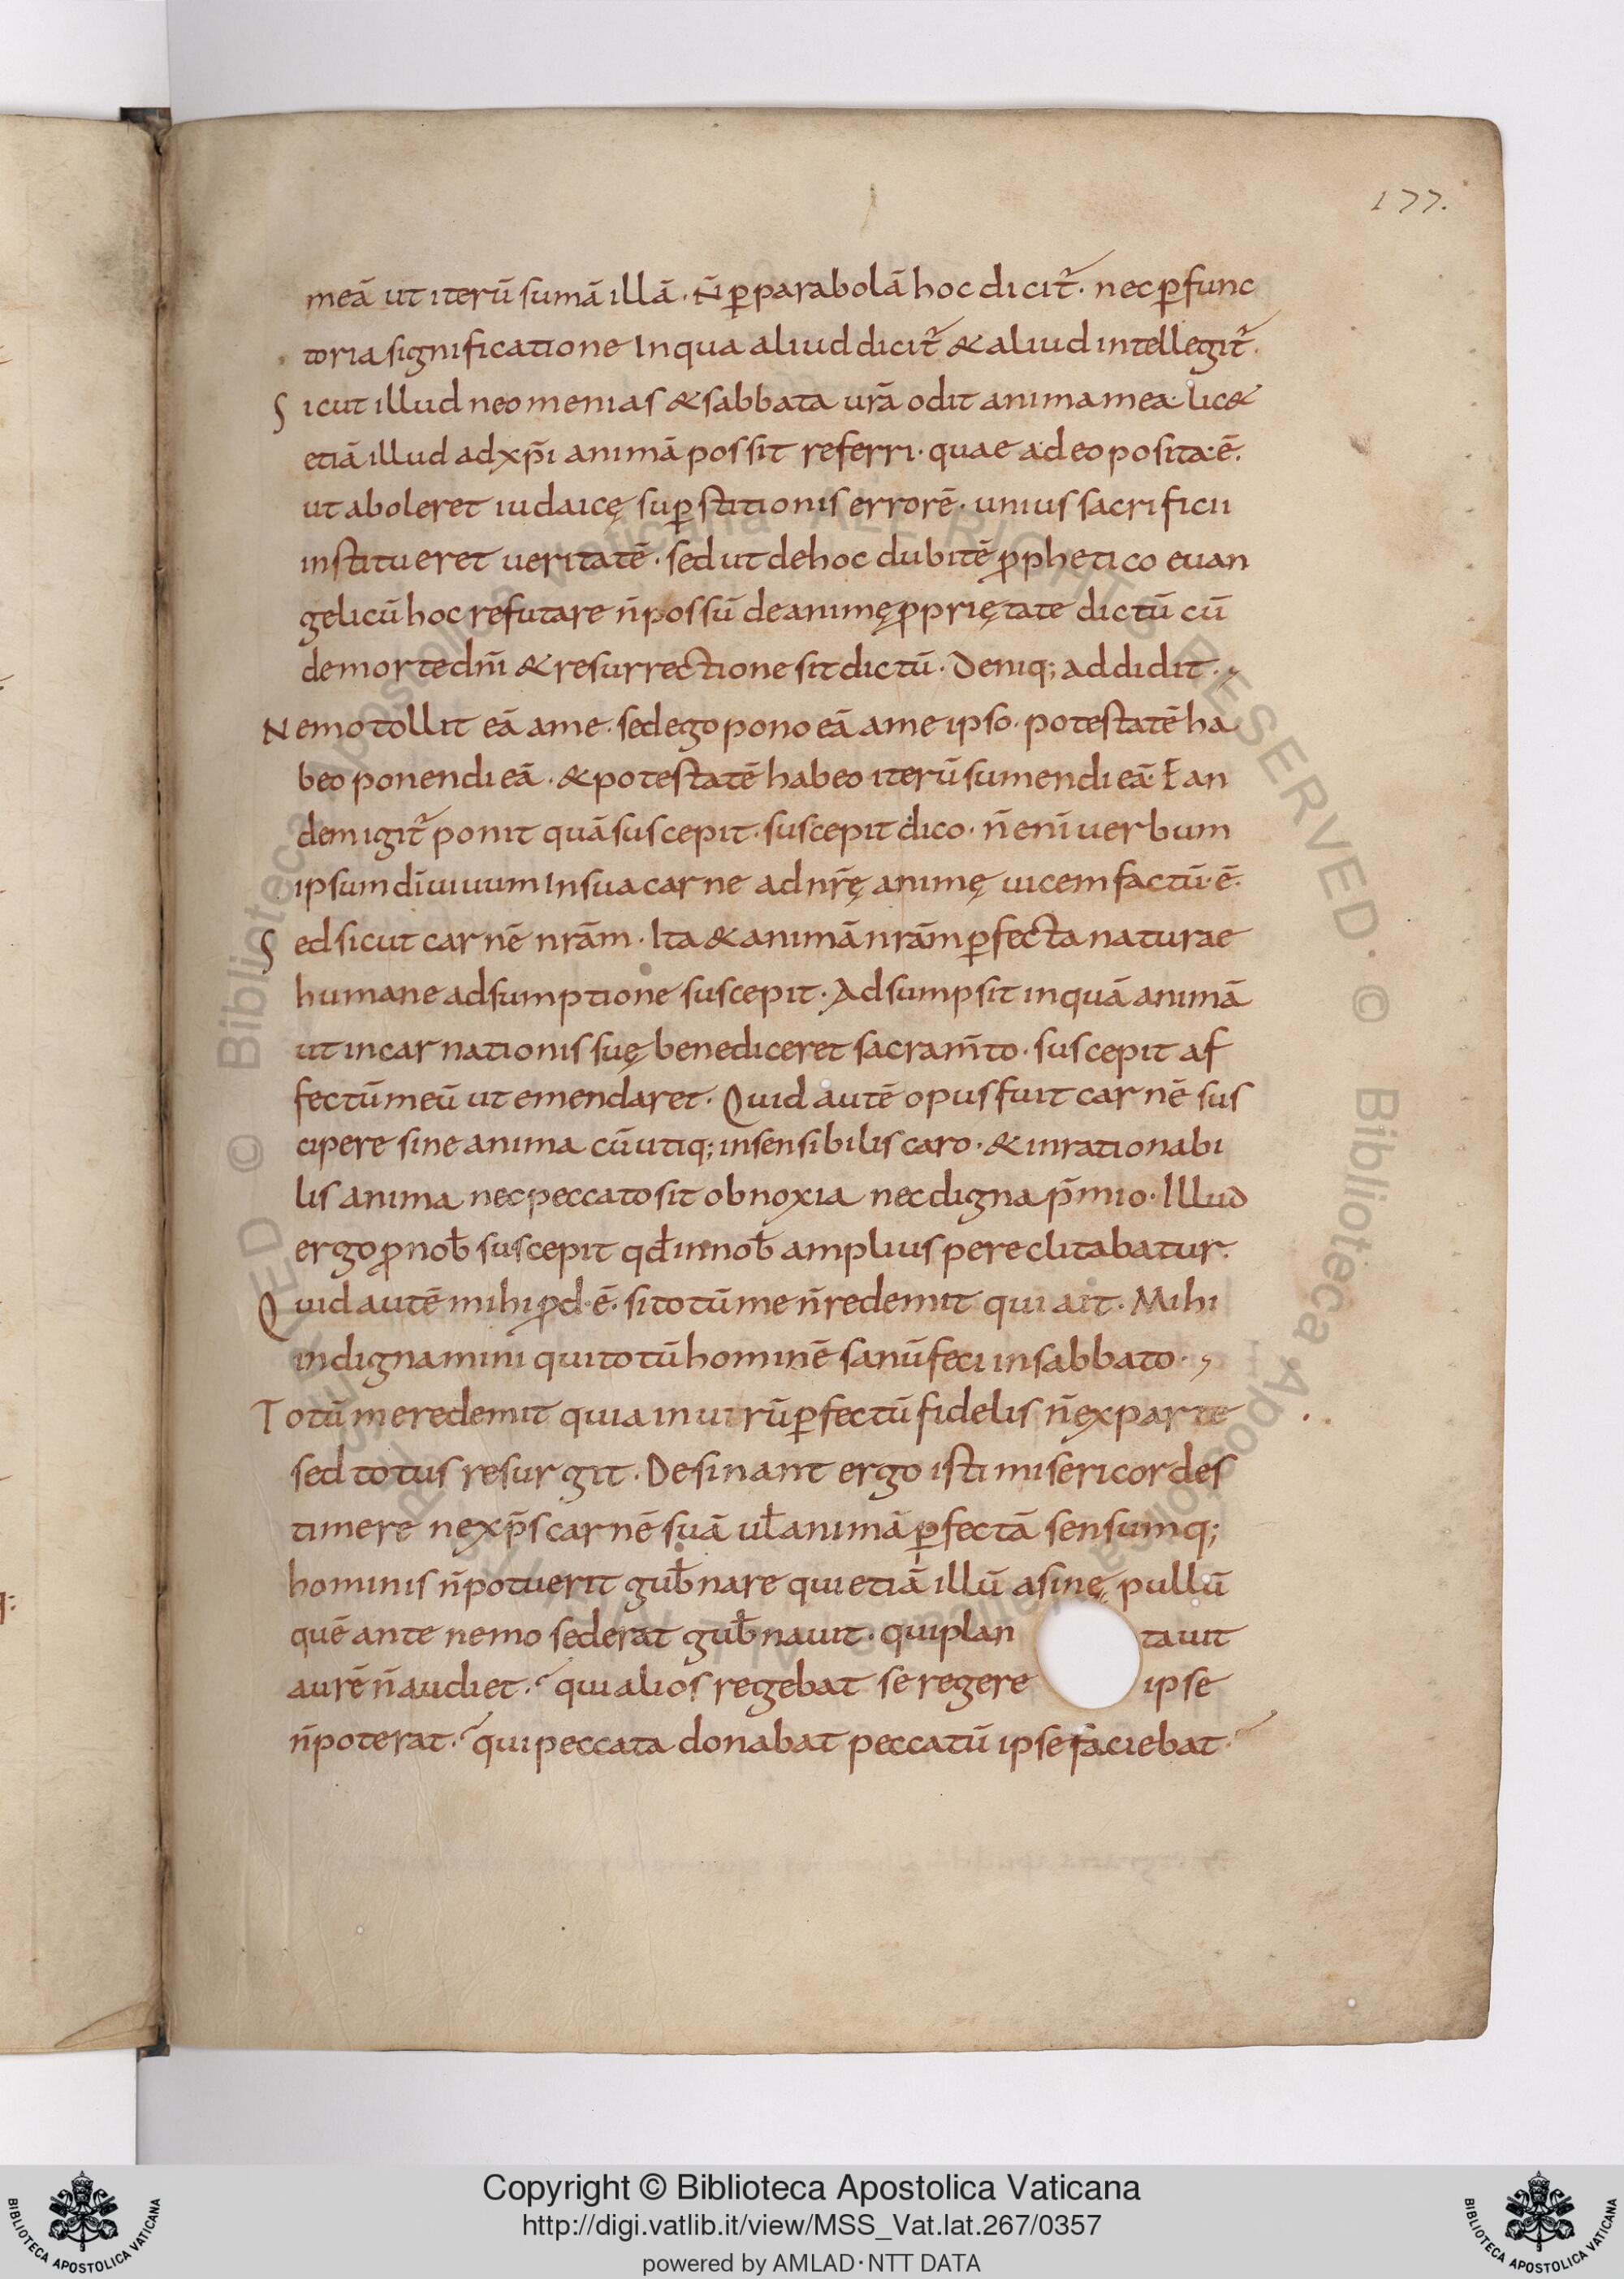 177.
meā ut iterū sumā illā · n̄ ꝑ parabolā hoc dicit᷒ · nec ꝑfunc
toria significatione In qua aliud dicit᷒ & aliud intellegit᷒ ·
Sicut illud neomenias & sabbata urā odit anima mea · lic&
etiā illud ad xp̄i animā possit referri · quae adeo posita · ē ·
ut aboleret iudaicę suꝑstitionis errorē · unius sacrificii
institueret ueritatē · sed ut de hoc dubitē ꝓphetico euan
gelicū hoc refutare n̄ possū de animę ꝓprię tate dictū cū
de morte dn̄i & resurrectione sit dictū · Deniq; addidit ·
Nemo tollit eā a me · sed ego pono eā a me ipso · potestatē ha
beo ponendi eā · & potestatē habeo iterū sumendi eā · Ean
dem igit᷒ ponit quā suscepit · suscepit dico · n̄ enī uerbum
ipsum dī uiuum In sua carne ad nr̄ę animę uicem factū · ē ·
Sed sicut carnē nrām · Ita & animā nrām ꝑfecta naturae
humane adsumptione suscepit · Adsumpsit inquā animā
ut incarnationis suę benediceret sacram̄to · suscepit af
fectū meū ut emendaret · Quid autē opus fuit carnē sus
cipere sine anima cū utiq; insensibilis caro · & inrationabi
lis anima nec peccato sit obnoxia nec digna p̄mio · Illud
ergo ꝓ nob̄ suscepit qd̄ in nob̄ amplius pereclitabatur ·
Quid autē mihi ꝓd · ē · si totū me n̄ redemit qui ait · Mihi
indignamini qui totū hominē sanū feci in sabbato ·
Totū me redemit quia in uirū ꝑfectū fidelis n̄ ex parte
sed totus resurgit · Desinant ergo isti misericordes
timere ne xp̄s carnē suā ul̄ animā ꝑfectā sensumq;
hominis n̄ potuerit gub̄nare qui etiā illū asinę pullū
quē ante nemo sederat gub̄nauit · qui plan tauit
aurē n̄ audiet · qui alios regebat se regere ipse
n̄ poterat · qui peccata donabat peccatū ipse faciebat ·
q:
© Biblioteca Apostolica Vaticana · ALL RIGHTS RESERVED · © Biblioteca Apostolica Vaticana · ALL RIGHTS RESERVED
BIBLIOTECA APOSTOLICA VATICANA
Copyright © Biblioteca Apostolica Vaticana
http://digi.vatlib.it/view/MSS_Vat.lat.267/0357
powered by AMLAD · NTT DATA
BIBLIOTECA APOSTOLICA VATICANA